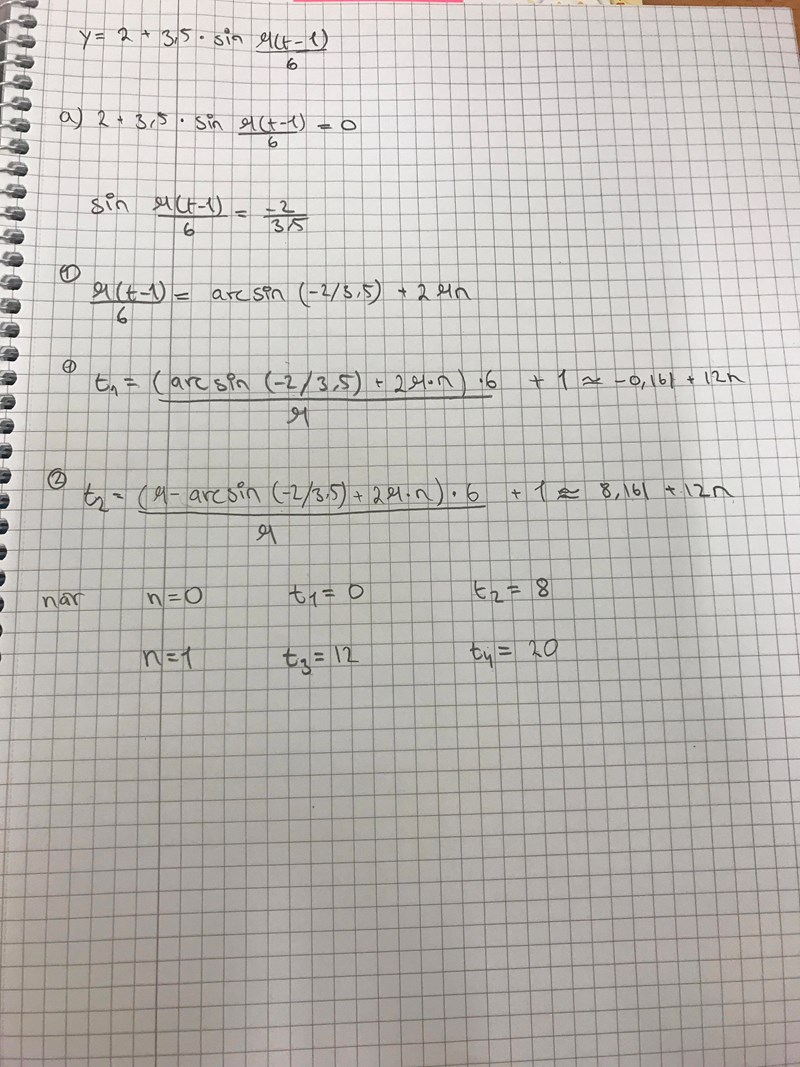 y = 2 + 3,5 · sin π(t-1)/6
a) 2 + 3,5 · sin π(t-1)/6 = 0
sin π(t-1)/6 = -2/3,5
① π(t-1)/6 = arcsin (-2/3,5) + 2πn
① t₁ = (arcsin (-2/3,5) + 2π·n) · 6/π + 1 ≈ -0,161 + 12n
② t₂ = (π - arcsin (-2/3,5) + 2π·n) · 6/π + 1 ≈ 8,161 + 12n
når n=0 t₁ = 0 t₂ = 8
n=1 t₃ = 12 t₄ = 20